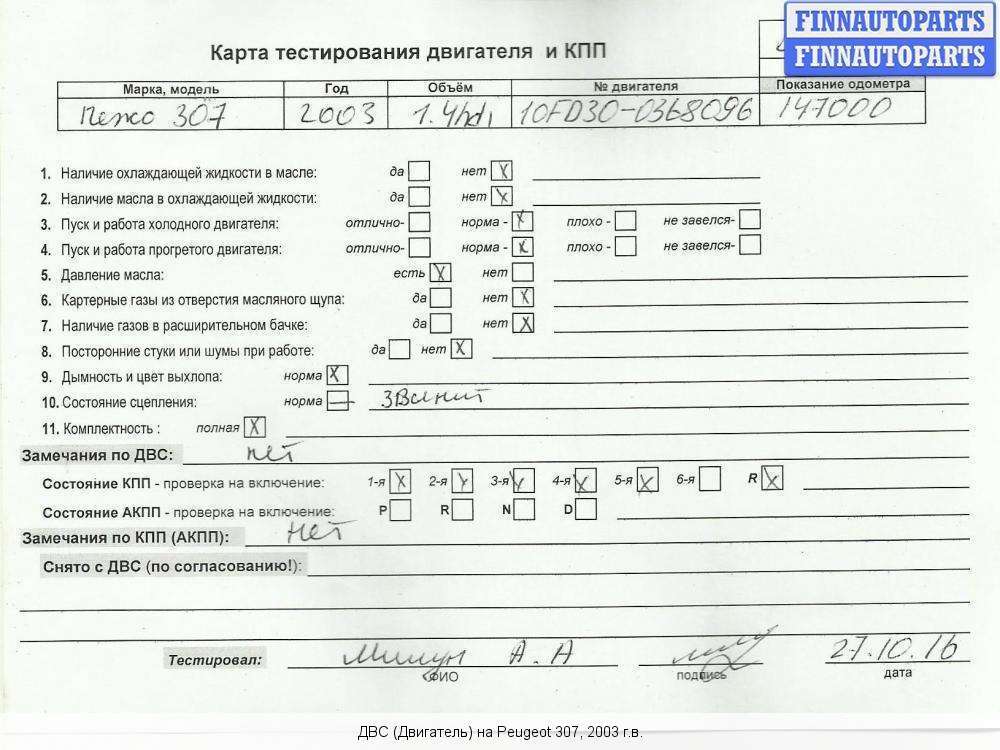 FINNAUTOPARTS
FINNAUTOPARTS
Карта тестирования двигателя и КПП
Марка, модель Год Объём № двигателя Показание одометра
Пежо 307 2003 1.4hdi 10FD30-0368096 147000
1. Наличие охлаждающей жидкости в масле: да нет X
2. Наличие масла в охлаждающей жидкости: да нет X
3. Пуск и работа холодного двигателя: отлично- норма - X плохо - не завелся-
4. Пуск и работа прогретого двигателя: отлично- норма - X плохо - не завелся-
5. Давление масла: есть X нет
6. Картерные газы из отверстия масляного щупа: да нет X
7. Наличие газов в расширительном бачке: да нет X
8. Посторонние стуки или шумы при работе: да нет X
9. Дымность и цвет выхлопа: норма X
10. Состояние сцепления: норма — звенит
11. Комплектность : полная X
Замечания по ДВС: нет
Состояние КПП - проверка на включение: 1-я X 2-я X 3-я X 4-я X 5-я X 6-я R X
Состояние АКПП - проверка на включение: P R N D
Замечания по КПП (АКПП): нет
Снято с ДВС (по согласованию!):
Тестировал: А.А 27.10.16
ФИО подпись дата
ДВС (Двигатель) на Peugeot 307, 2003 г.в.